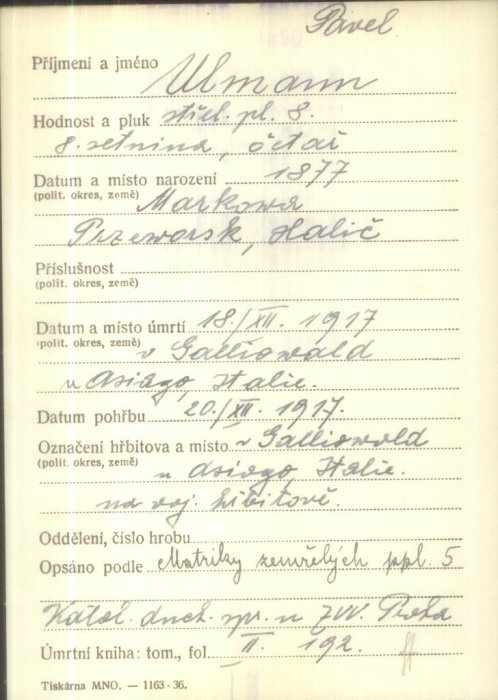 Pavel
Příjmení a jméno Ulmann
Hodnost a pluk střel. pl. 8.
8. setnina, četař
Datum a místo narození 1877
(polit. okres, země) Markowa
Przeworsk, Halič
Příslušnost
(polit. okres, země)
Datum a místo úmrtí 18./XII. 1917
(polit. okres, země) v Galliowald
u Asiago, Italie.
Datum pohřbu 20./XII. 1917.
Označení hřbitova a místo v Galliowold
(polit. okres, země) u Asiago, Italie.
na voj. hřbitově.
Oddělení, číslo hrobu
Opsáno podle Matriky zemřelých ppl. 5
Katol. duch. spr. u ZVV. Praha
Úmrtní kniha: tom., fol. II. 192.
Tiskárna MNO. — 1163-36.